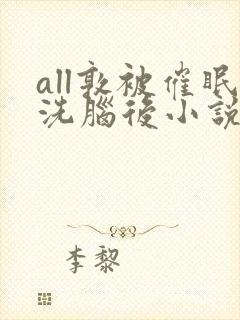 all敦被催眠
洗腦後小説
李黎